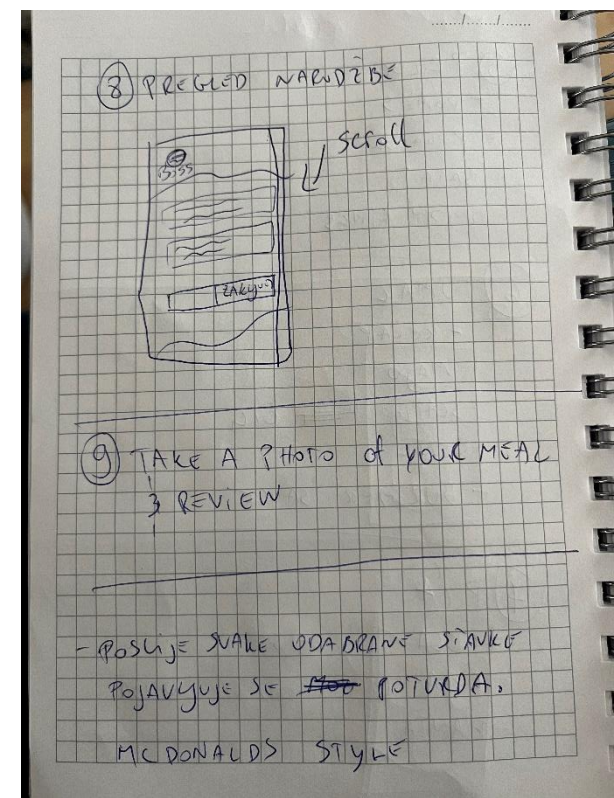 8 PREGLED NARUDŽBE
scroll
ZAKLJUČ
9 TAKE A PHOTO of YOUR MEAL
& REVIEW
- POSLIJE SVAKE ODABRANE STAVKE
POJAVLJUJE SE POTVRDA.
MCDONALDS STYLE